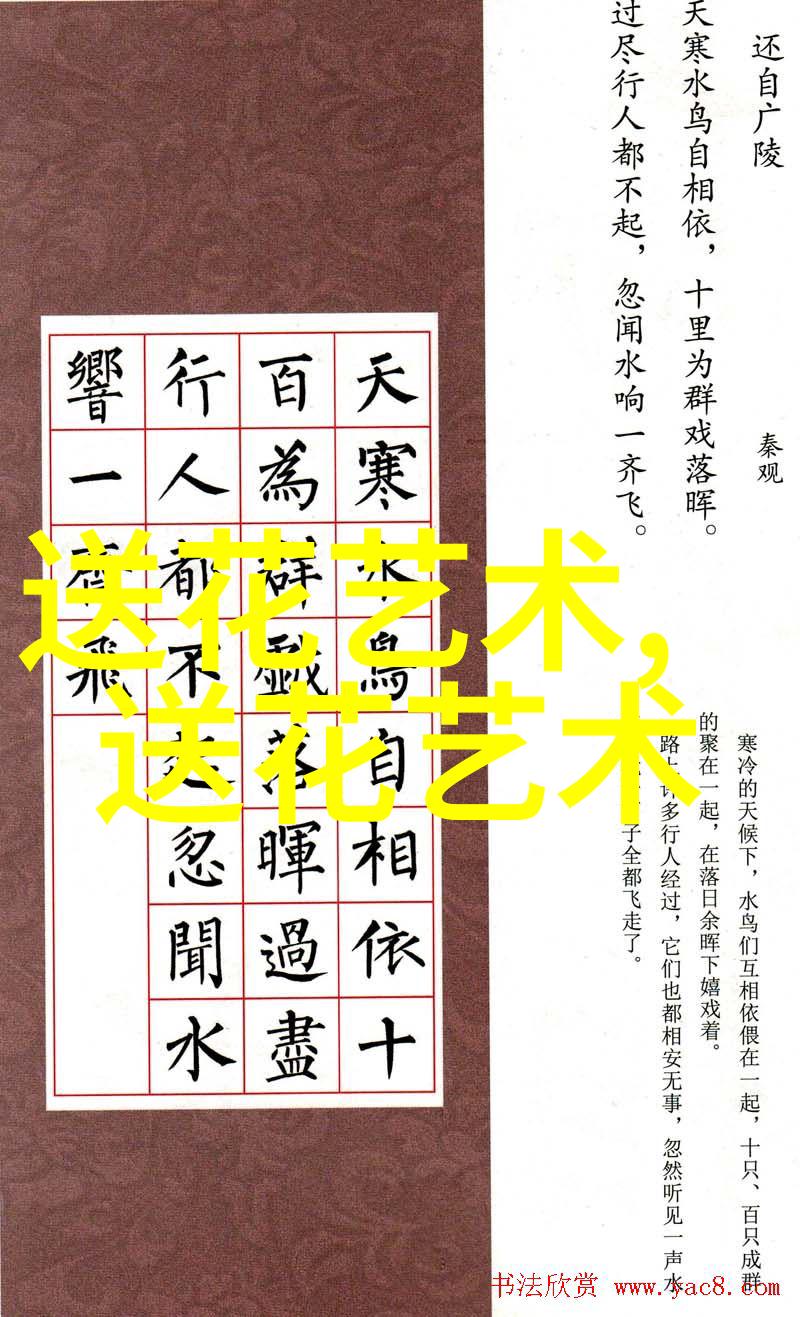 还自广陵
秦观
天寒水鸟自相依，十里为群戏落晖。
过尽行人都不起，忽闻水响一齐飞。
天寒水鳥自相依十
百為群戲落暉過盡
行人都不起忽聞水
響一齊飛
送花艺术,
送花艺术
寒冷的天候下，水鸟们互相依偎在一起，十只、百只成群
的聚在一起，在落日余晖下嬉戏着。
路上许多行人经过，它们也都相安无事，忽然听见一声水
子全都飞走了。
书法欣赏 www.yac8.com